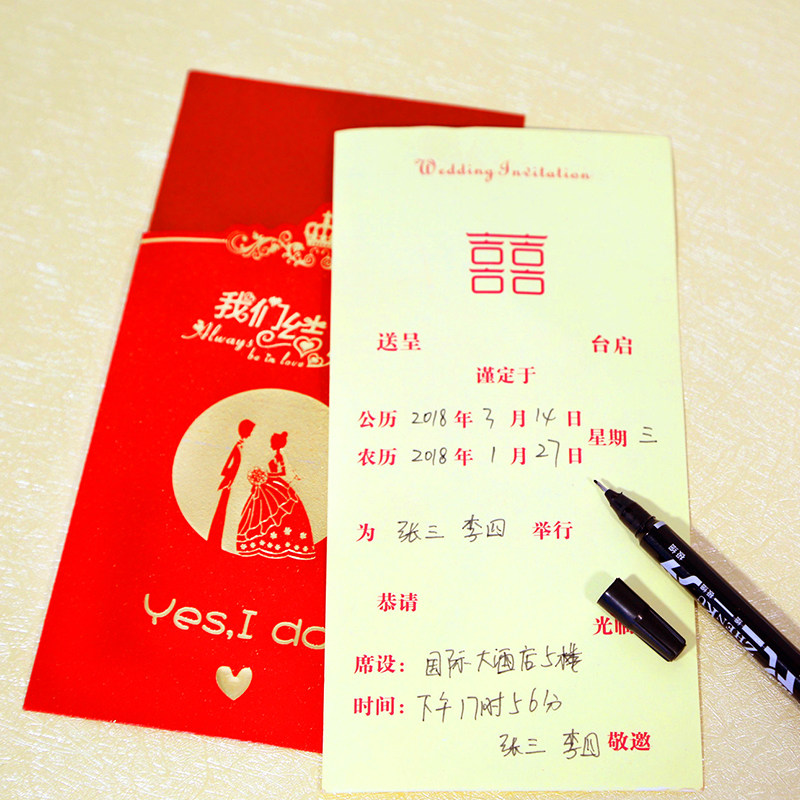 我们结
Always
be in love
Yes, I do
Wedding Invitation
囍
送呈 台启
谨定于
公历 2018 年 3 月 14 日 星期 三
农历 2018 年 1 月 27 日
为 张三 李四 举行
恭请
光临
席设：国际大酒店5楼
时间：下午17时56分
张三 李四 敬邀